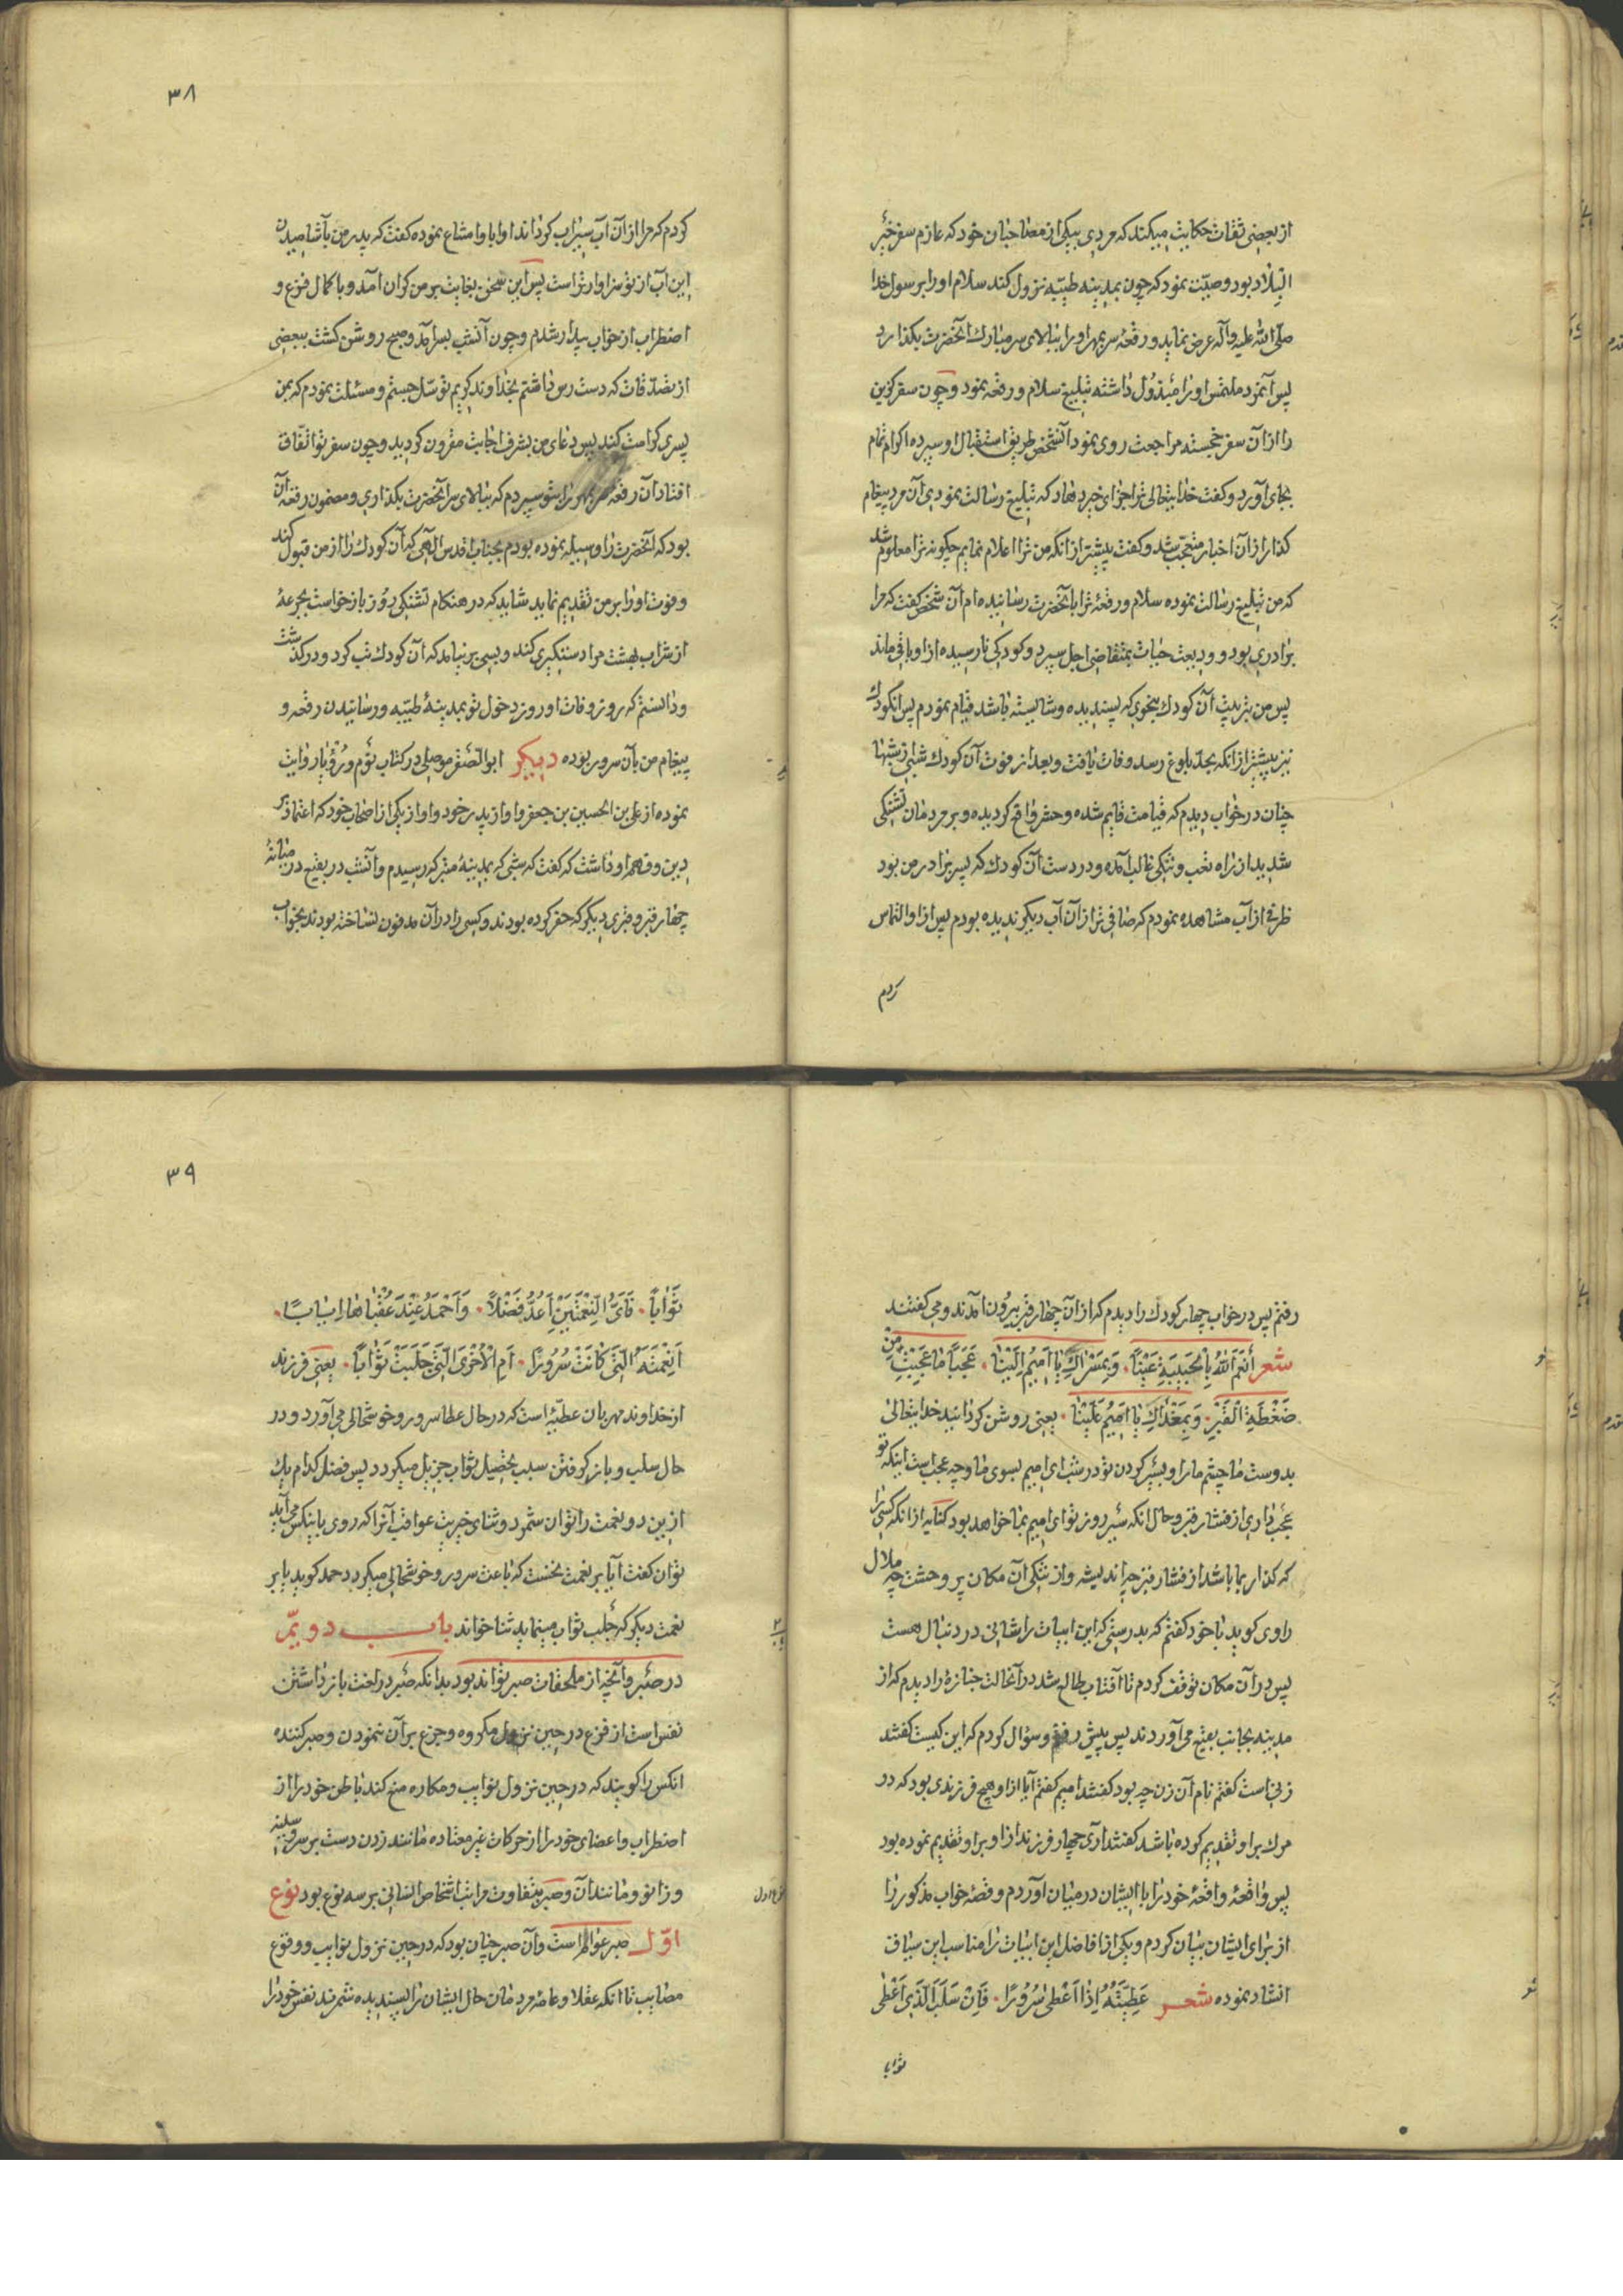 از بعضی ثقات حکایت میکند که مردی بیکی از مصاحبان خود که عازم سفر خیر
البلاد بود وصیّت نمود که چون بمدینه طیّبه نزول کند سلام او را برسول خدا
صلّی الله علیه وآله عرض نماید و رقعهٔ سربمهر او را ببالای سر مبارک آنحضرت بگذارد
پس آنمرد ملتمس او را مبذول داشته تبلیغ سلام و رقعه نمود و چون سفر گزین
را از آن سفر خجسته مراجعت روی نمود آنشخص طریق استقبال او سپرده اکرام تمام
بجای آورد و گفت خدایتعالی ترا جزای خیر دهاد که تبلیغ رسالت نمودی آن مرد پیغام
گذار از آن اخبار متعجّب شد و گفت پیشتر از انکه من ترا اعلام نمایم چگونه ترا معلوم شد
که من تبلیغ رسالت نموده سلام و رقعهٔ ترا بآنحضرت رسانیده‌ام آن شخص گفت که مرا
برادری بود و ودیعت حیات بمتقاضی اجل سپرد و کودکی نارسیده از او باقی ماند
پس من بتربیت آن کودک بنحوی که پسندیده و شایسته باشد قیام نمودم پس آنکودک
نیز پیشتر از انکه بحدّ بلوغ رسد وفات یافت و بعد از فوت آن کودک شبی از شبها
چنان در خواب دیدم که قیامت قایم شده و حشر واقع گردیده و بر مردمان تشنگی
شدید از راه تعب و تنگی غالب آمده و در دست آن کودک که پسر برادر من بود
ظرفی از آب مشاهده نمودم که صافی‌تر از آن آب دیگر ندیده بودم پس از او التماس
کردم
۳۸
کردم که مرا از آن آب سیراب گرداند او ابا و امتناع نموده گفت که پدر من بآشامیدن
این آب از تو سزاوارتر است پس این سخن بغایت بر من گران آمد و با کمال فزع و
اضطراب از خواب بیدار شدم و چون آنشب بسر آمد و صبح روشن گشت ببعضی
از تصدّقات که دست رس داشتم بخداوند کریم توسّل جستم و مسئلت نمودم که بمن
پسری کرامت کند پس دعای من بشرف اجابت مقرون گردید و چون سفر تو اتّفاق
افتاد آن رقعه سربمهر را بتو سپردم که ببالای سر آنحضرت بگذاری و مضمون رقعه آن
بود که آنحضرت را وسیله نموده بودم بجناب اقدس الهی که آن کودک را از من قبول کند
و فوت او را بر من تقدیم نماید شاید که در هنگام تشنگی روز بازخواست بجرعهٔ
از شراب بهشت مرا دستگیری کند و بسی برنیامد که آن کودک تب کرد و درگذشت
و دانستم که روز وفات او روز دخول تو بمدینهٔ طیّبه و رسانیدن رقعه و
پیغام من بآن سرور بوده دیگر ابو الصّقر موصلی در کتاب نوم و رؤیا روایت
نموده از علی بن الحسین بن جعفر و او از پدر خود و او از یکی از اصحاب خود که اعتماد بر
دین و فهم او داشت که گفت که شبی که بمدینهٔ متبرکه رسیدم و آنشب در بقیع در میانهٔ
چهار قبر و قبری دیگر که حفر کرده بودند و کسی را در آن مدفون نساخته بودند بخواب
رفتم پس در خواب چهار کودک را دیدم که از آن چهار قبر بیرون آمدند و می گفتند
شعر أَنْعَمَ اللهُ بِالْحَبِیبَةِ عَیْناً. وَ بِمَسْرَاكِ یَا اَمِیمُ اِلَیْنَا. عَجَباً مَا عَجِبْتِ مِنْ
ضَغْطَةِ الْقَبْرِ. وَ بِمَغْدَاكِ یَا اَمِیمُ عَلَیْنَا. یعنی روشن گردانید خدایتعالی
بدوست ما چشم ما را و بسیر کردن تو در شب ای امیم بسوی ما و چه عجب است اینکه تو
عجب داری از فشار قبر و حال انکه سیر روز تو ای امیم بما خواهد بود کنایه از انکه کسی را
که گذار بما باشد از فشار قبر چه اندیشه و از تنگی آن مکان پر وحشت چه ملال
راوی گوید با خود گفتم که بدرستی که این ابیات را شانی در دنبال هست
پس در آن مکان توقف کردم تا آفتاب طالع شد در آنحالت جنازهٔ را دیدم که از
مدینه بجانب بقیع می آوردند پس پیش رفتم و سؤال کردم که این کیست گفتند
زنی است گفتم نام آن زن چه بود گفتند امیم گفتم آیا از او هیچ فرزندی بود که در
مرگ بر او تقدیم کرده باشد گفتند آری چهار فرزند از او بر او تقدیم نموده بود
پس واقعهٔ واقعهٔ خود را با ایشان در میان آوردم و قصهٔ خواب مذکور را
از برای ایشان بیان کردم و یکی از افاضل این ابیات را مناسب این سیاق
انشاد نموده شعر عَطِیَّتُهُ اِذَا اَعْطی سُرُورًا. فَاِنْ سَلَبَ الَّذِی اَعْطی
ثواباً
۳۹
ثَوَاباً. فَاَیُّ النِّعْمَتَیْنِ اَعُدُّ فَضْلاً. وَ اَحْمَدُ عِنْدَ عُقْبَاهَا اِیَابًا.
اَنِعْمَتُهُ الَّتِی کَانَتْ سُرُورًا. اَمِ الْاُخْرَی الَّتِی جَلَبَتْ ثَوَاباً. یعنی فرزند
از خداوند مهربان عطیّهٔ است که در حال عطا سرور و خوشحالی می آورد و در
حال سلب و باز گرفتن سبب تحصیل ثواب جزیل میگردد پس فضل کدام یک
ازین دو نعمت را توان شمرد و ثنای خیریت عواقب آنرا که روی باینکس می آید
توان گفت آیا بر نعمت نخست که باعث سرور و خوشحالی میگردد حمد گوید یا بر
نعمت دیگر که جلب ثواب مینماید ثنا خواند باب دویّم
در صبر و آنچه از ملحقات صبر تواند بود بدانکه صبر در لغت باز داشتن
نفس است از فزع در حین نزول مکروه و جزع بر آن ننمودن و صبر کننده
انکس را گویند که در حین نزول نوایب و مکاره منع کند باطن خود را از
اضطراب و اعضای خود را از حرکات غیر معتاده مانند زدن دست بر سر و سینه
و زانو و مانند آن و صبر بتفاوت مراتب اشخاص انسانی بر سه نوع بود نوع
اوّل صبر عوام است و آن صبر چنان بود که در حین نزول نوایب و وقوع
مصایب تا انکه عقلا و عامهٔ مردمان حال ایشان را پسندیده شمرند نفس خود را